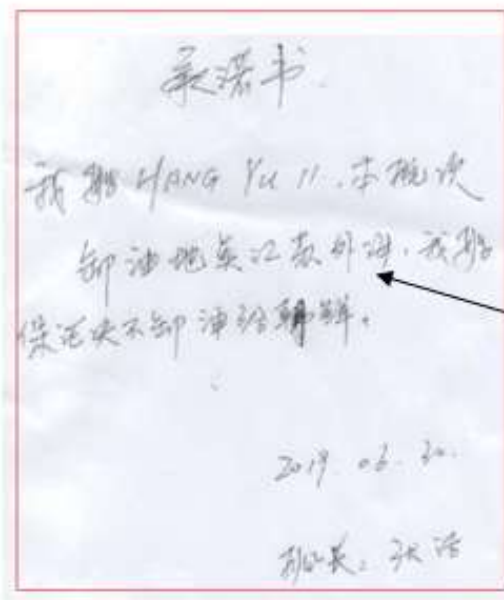 承诺书.
我船 HANG YU 11.本航次
卸油地点江苏外海.我船
保证决不卸油给朝鲜.
2019.06.30.
船长:张